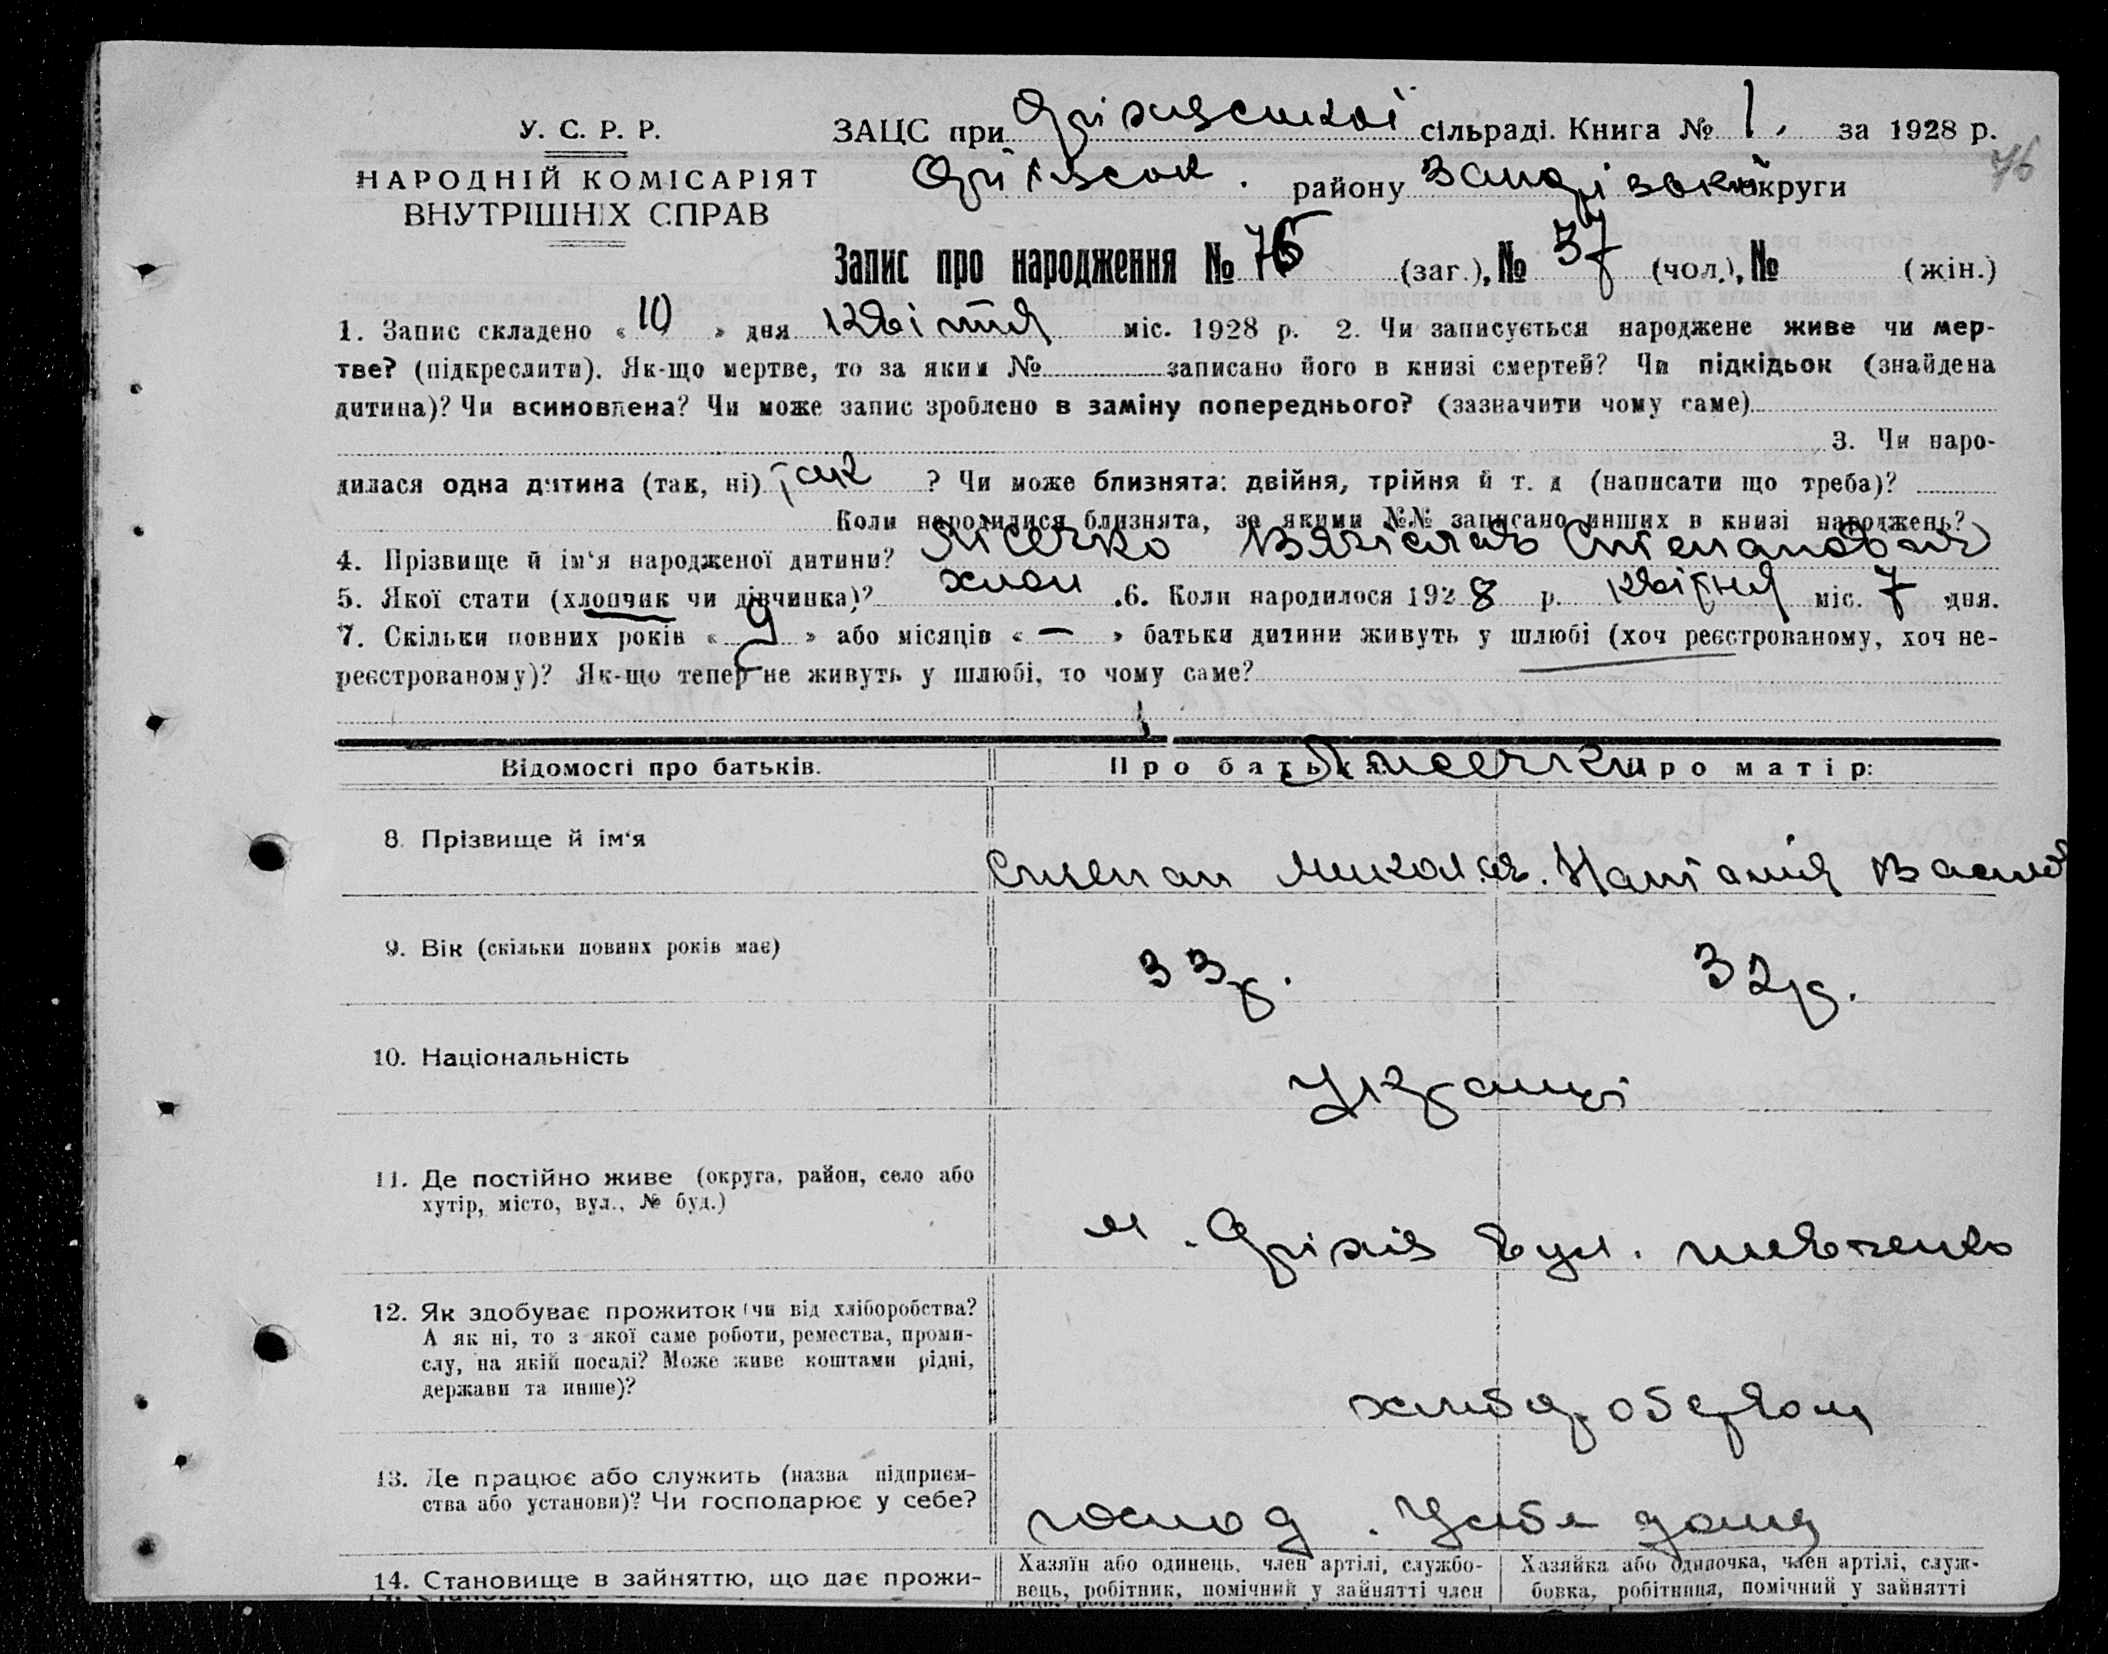 У. С. Р. Р.
НАРОДНІЙ КОМІСАРІЯТ
ВНУТРІШНІХ СПРАВ
ЗАЦС при Оріхівській сільраді. Книга № 1. за 1928 р.
76
Оріхівськ. району Запорізької округи
Запис про народження № 76 (заг.), № 37 (чол.), № (жін.)
1. Запис складено « 10 » дня квітня міс. 1928 р. 2. Чи записується народжене живе чи мер-
тве? (підкреслити). Як-що мертве, то за яким № записано його в книзі смертей? Чи підкідьок (знайдена
дитина)? Чи всиновлена? Чи може запис зроблено в заміну попереднього? (зазначити чому саме)
3. Чи наро-
дилася одна дитина (так, ні) так ? Чи може близнята: двійня, трійня й т. д (написати що треба)?
Коли народилися близнята, за якими №№ записано инших в книзі народжень?
4. Прізвище й ім‘я народженої дитини? Лісечко Вячіслав Степанович
5. Якої стати (хлопчик чи дівчинка)? хлоп .6. Коли народилося 1928 р. квітня міс. 7 дня.
7. Скільки повних років « 9 » або місяців « — » батьки дитини живуть у шлюбі (хоч реєстрованому, хоч не-
реєстрованому)? Як-що тепер не живуть у шлюбі, то чому саме?
Відомості про батьків. Про батька: Про матір:
8. Прізвище й ім‘я
Степан Микол. Наталія Васил
9. Вік (скільки повних років має) 33 р. 32 р.
10. Національність
Украінці
11. Де постійно живе (округа, район, село або
хутір, місто, вул., № буд.)
м. Оріхів вул. Шевченко
12. Як здобуває прожиток (чи від хліборобства?
А як ні, то з якої саме роботи, ремества, проми-
слу, на якій посаді? Може живе коштами рідні,
держави та инше)?
хліборобством
13. Де працює або служить (назва підприєм-
ства або установи)? Чи господарює у себе?
господ. У себе дома
14. Становище в зайняттю, що дає прожи-
Хазяїн або одинець, член артілі, службо-
вець, робітник, помічний у зайнятті член
Хазяйка або одиночка, член артілі, служ-
бовка, робітниця, помічний у зайнятті